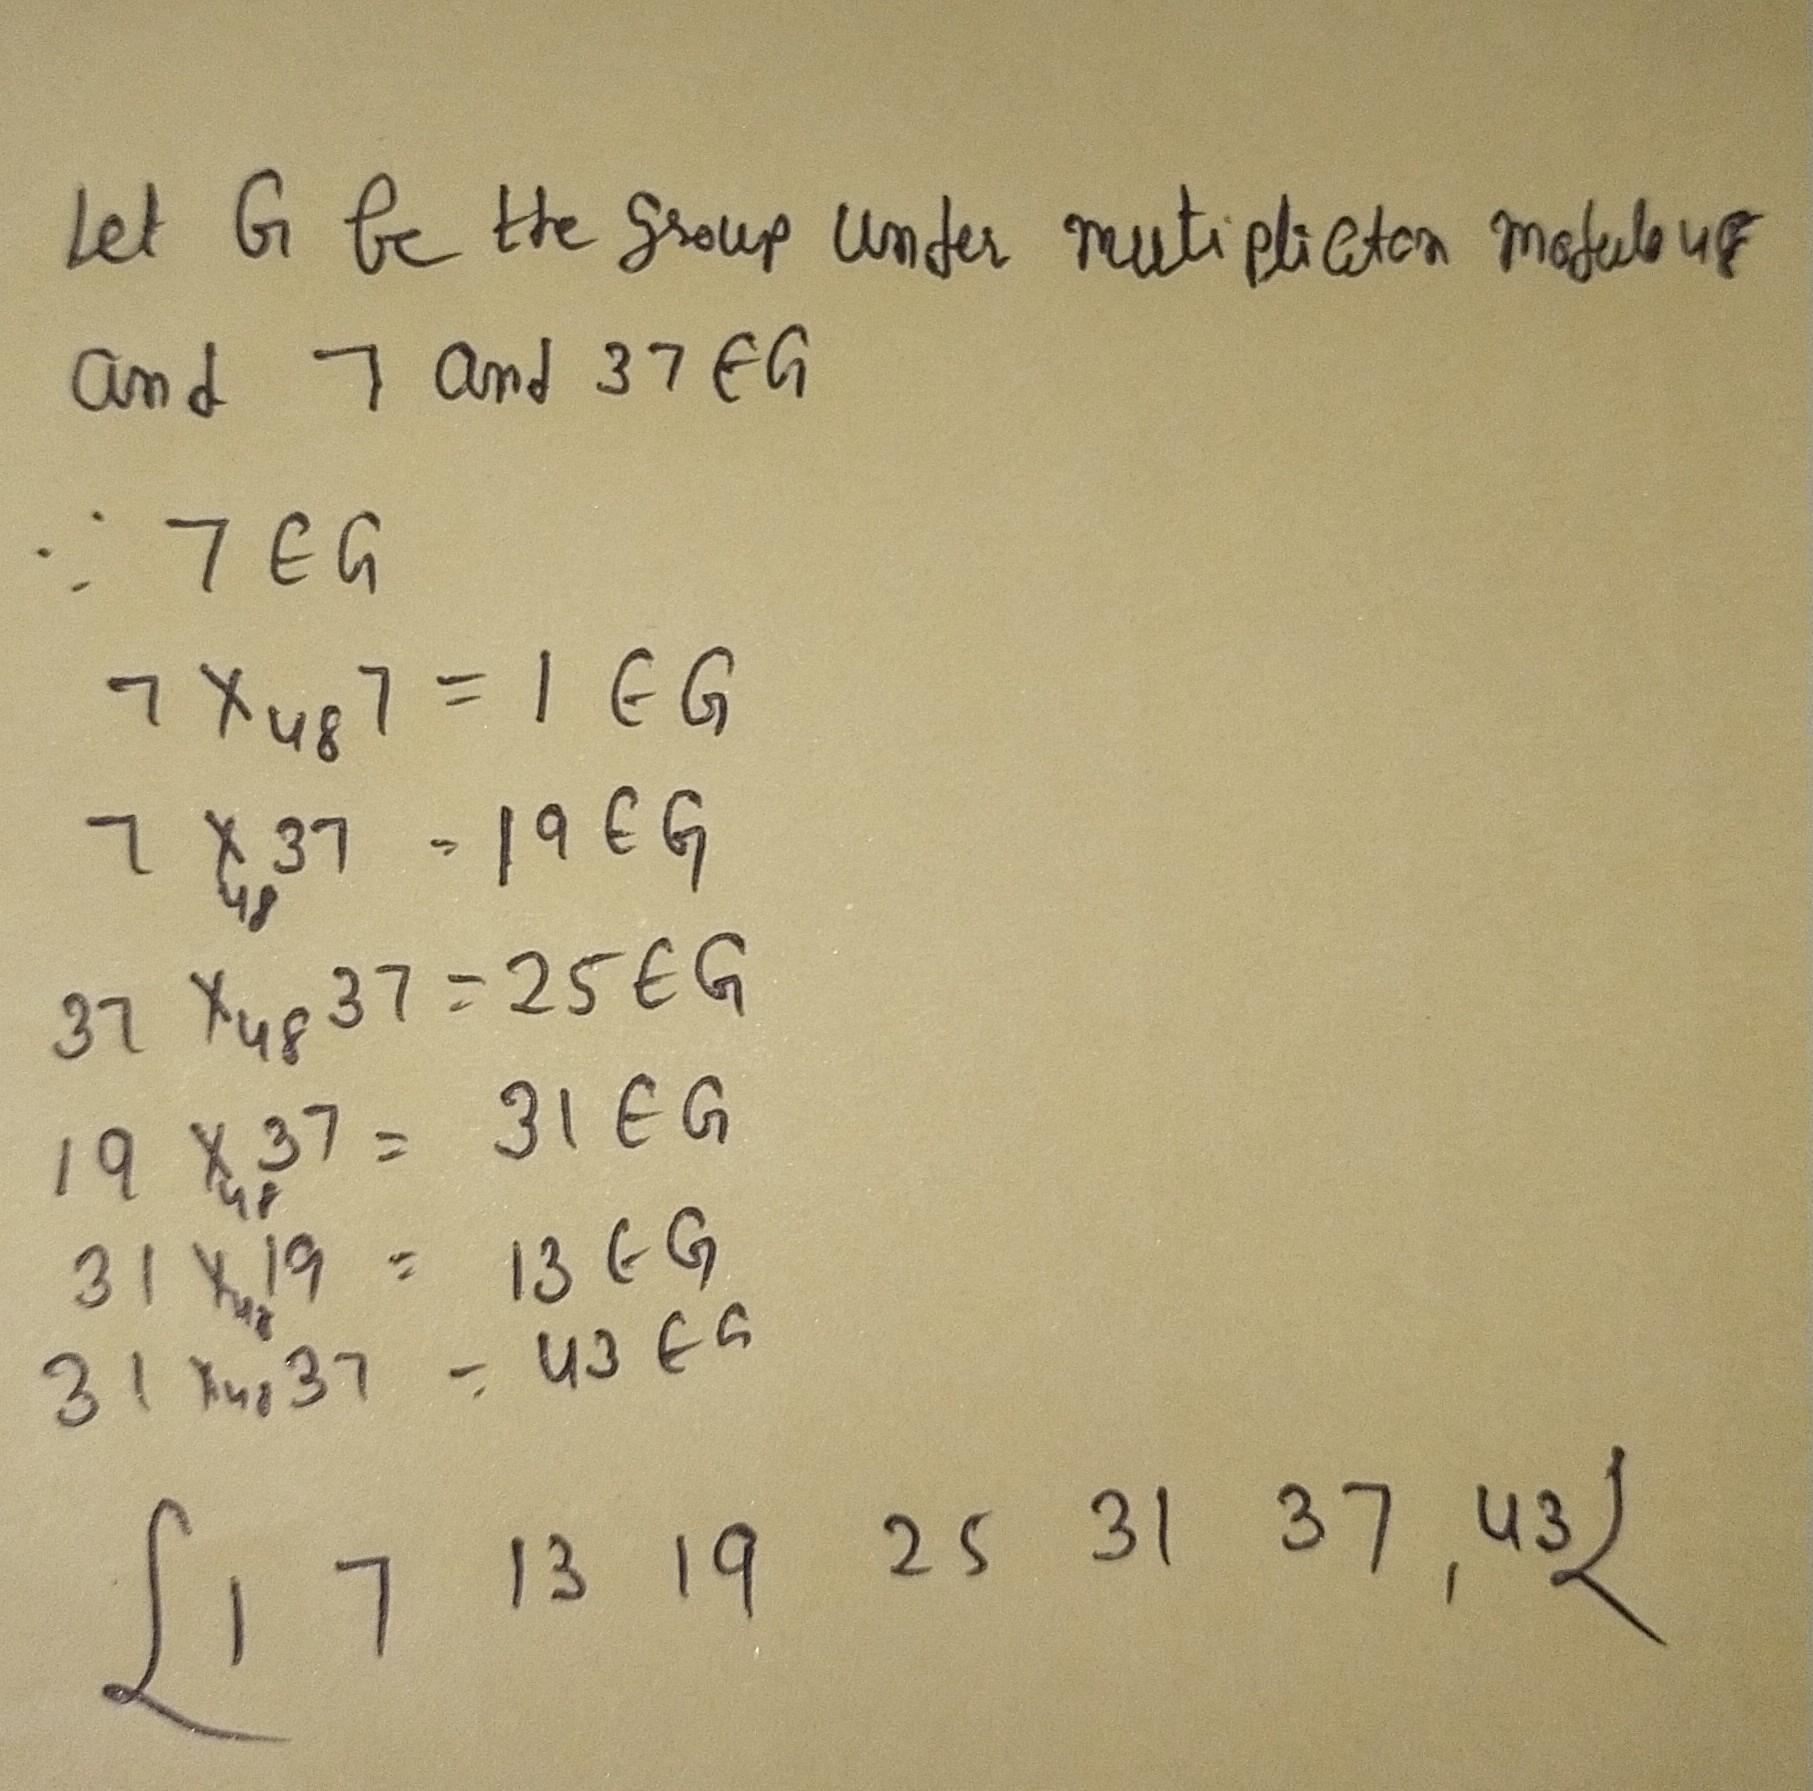 Let G be the group under mutiplicton modulo 48
and 7 and 37 ∈ G
∵ 7 ∈ G
7 ×₄₈ 7 = 1 ∈ G
7 ×₄₈ 37 = 19 ∈ G
37 ×₄₈ 37 = 25 ∈ G
19 ×₄₈ 37 = 31 ∈ G
31 ×₄₈ 19 = 13 ∈ G
31 ×₄₈ 37 = 43 ∈ G
{1 7 13 19 25 31 37, 43}